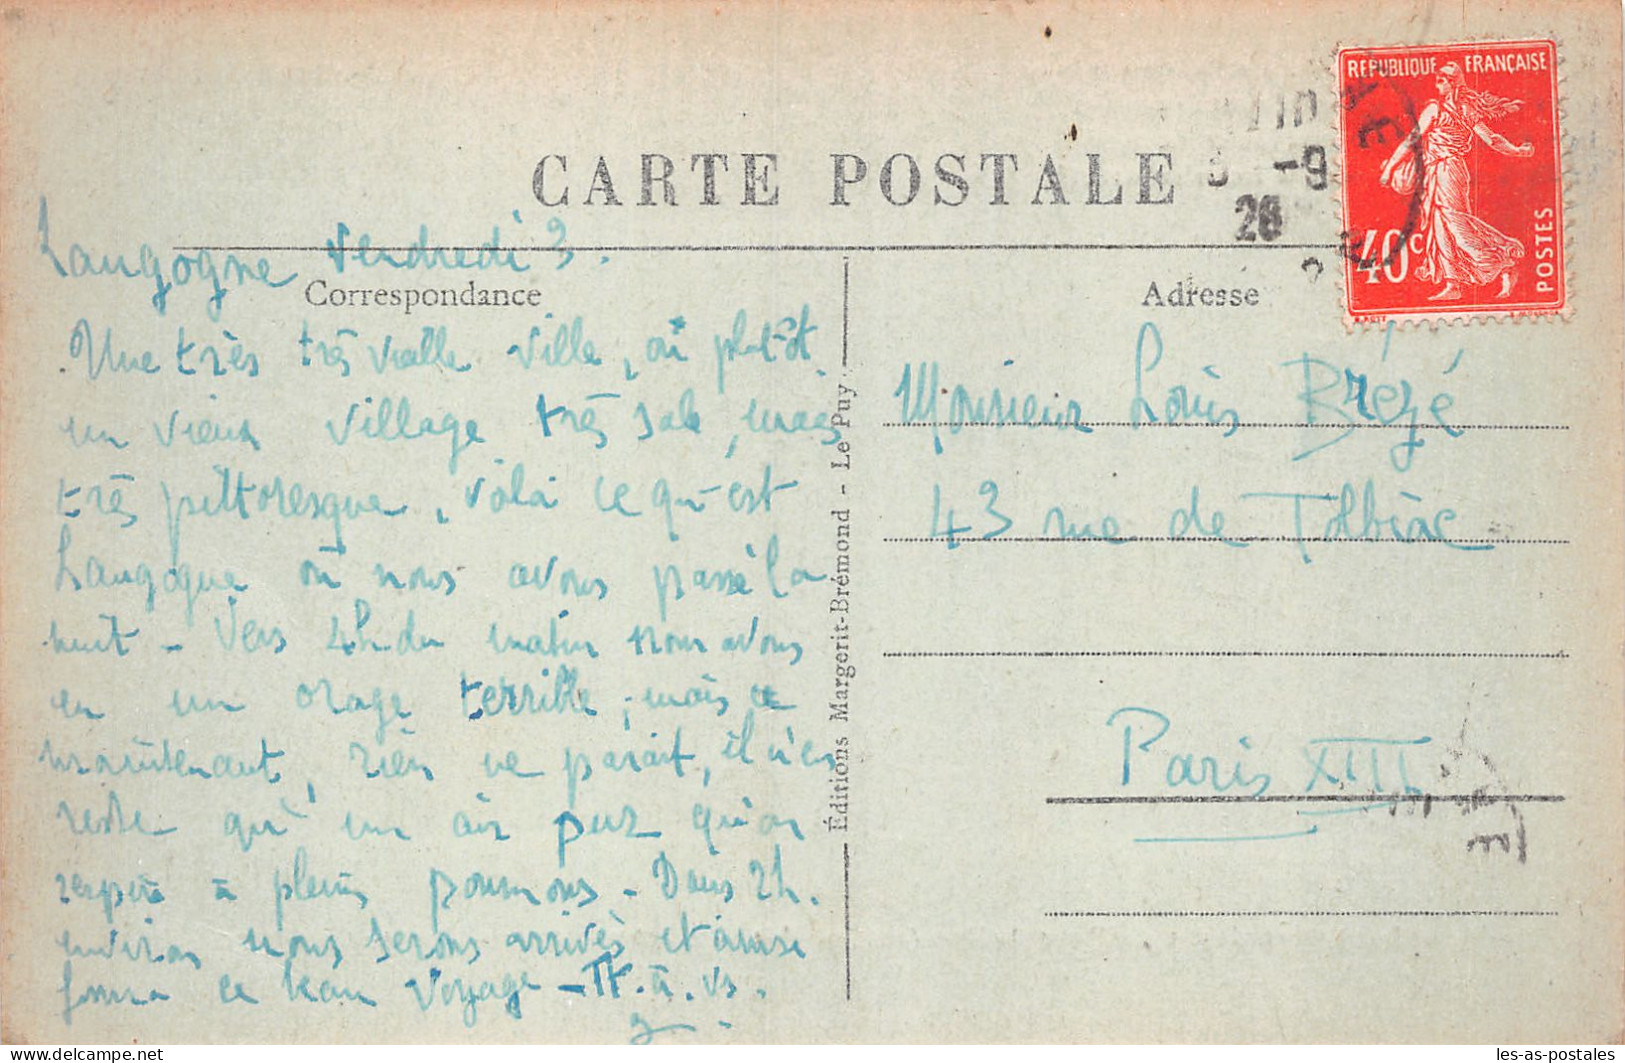 CARTE POSTALE
Correspondance
Langogne Vendredi 3.
Une très très vieille ville, où plutôt
un vieux village très sale, mais
très pittoresque, voilà ce qu'est
Langogne où nous avons passé la
nuit - Vers 4h du matin nous avons
eu un orage terrible, mais
maintenant, rien ne paraît, il n'en
reste qu'un air pur qu'on
respire à pleins poumons - Dans 2h.
environ nous serons arrivés et ainsi
finira ce beau voyage - Tt. à. vs.
Éditions Margerit-Brémond - Le Puy
REPUBLIQUE FRANÇAISE
40c
POSTES
-9
26
Adresse
Monsieur Louis Brézé
43 rue de Tolbiac
Paris XIII
les-as-postales - Delcampe.net